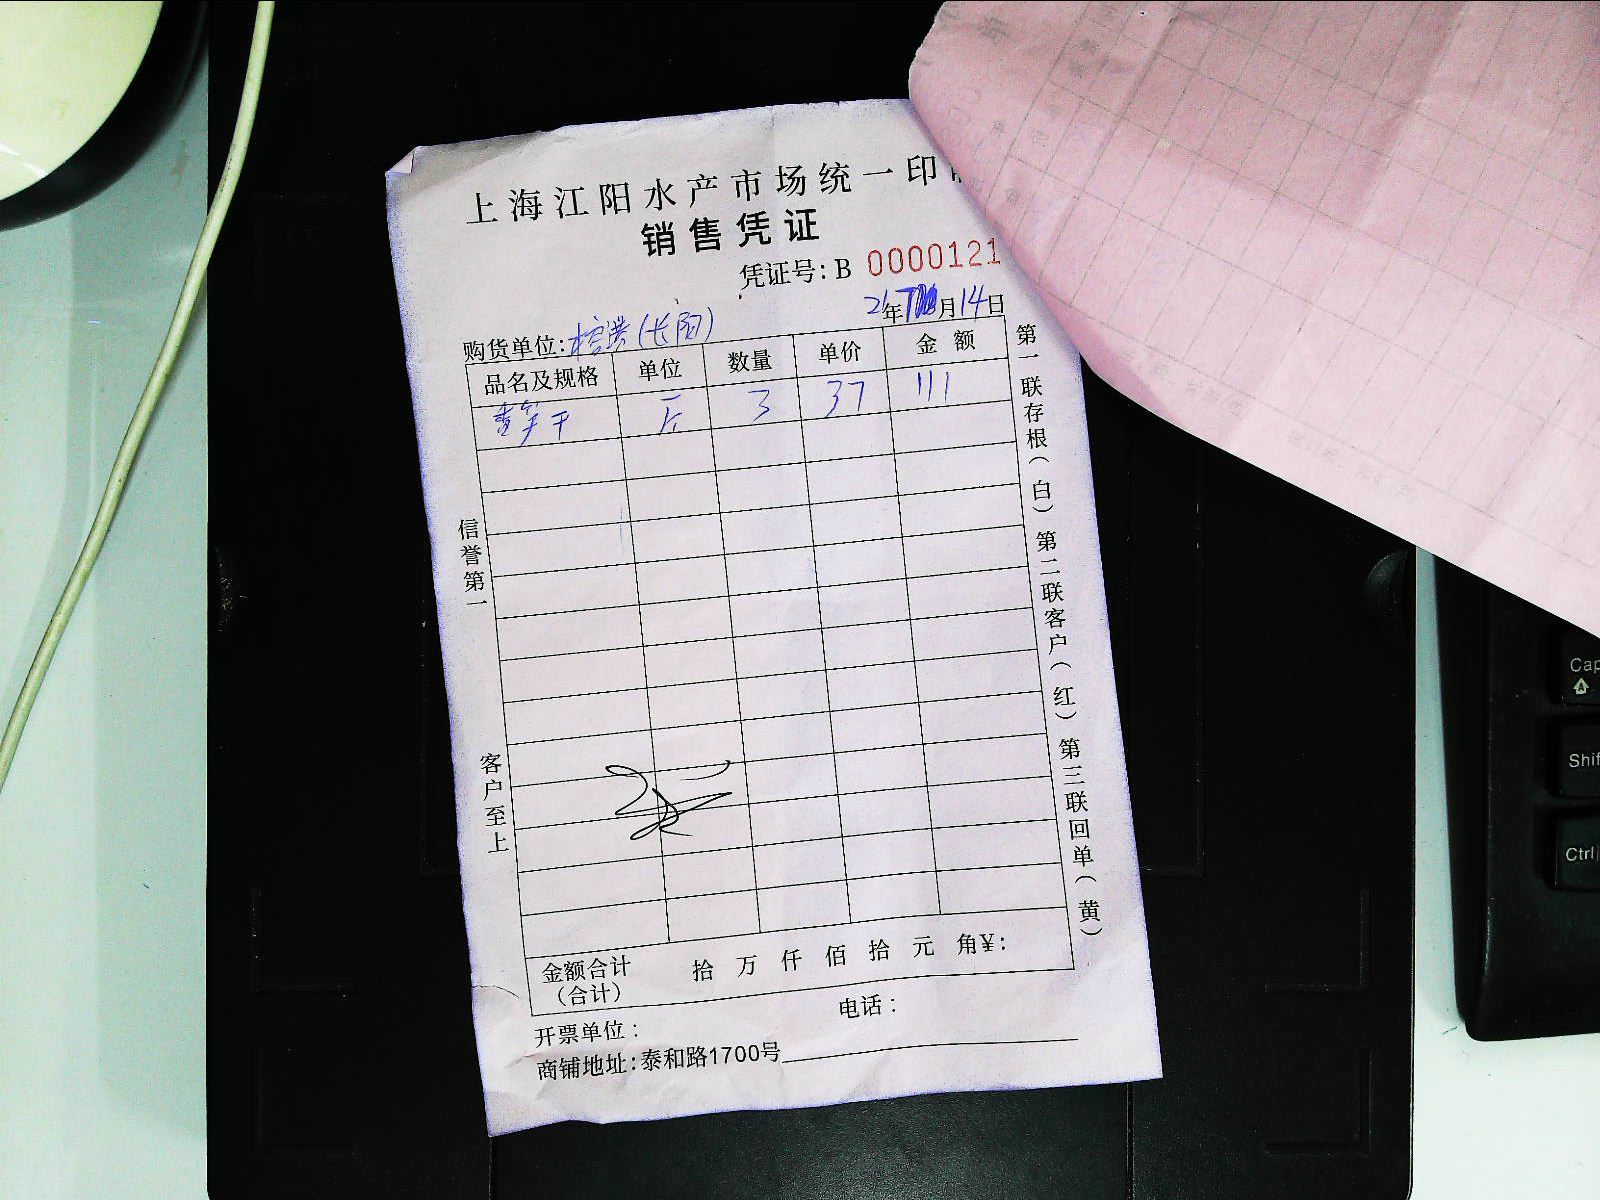 上海江阳水产市场统一印
销售凭证
凭证号：B 0000121
21年 月14日
购货单位： (长阳)
品名及规格 单位 数量 单价 金额
干 斤 3 37 111
信誉第一
客户至上
第一联存根（白）第二联客户（红）第三联回单（黄）
金额合计（合计） 拾 万 仟 佰 拾 元 角¥：
开票单位： 电话：
商铺地址：泰和路1700号
Cap
Shif
Ctrl